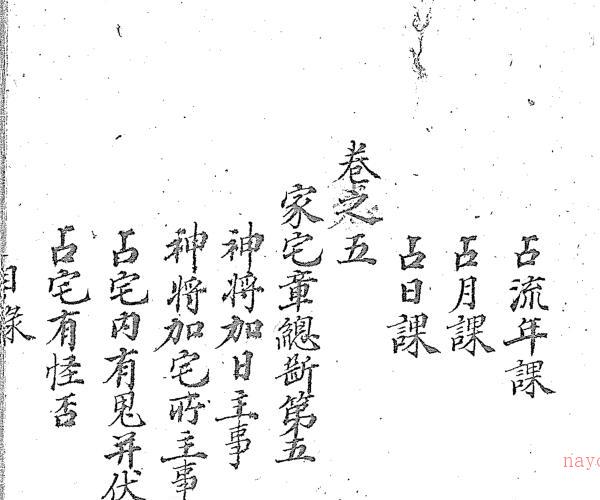 占流年課
占月課
占日課
卷之五
家宅章總斷第五
神將加日主事
神將加宅所主事
占宅內有鬼并伏
占宅有怪否
目錄
nayo